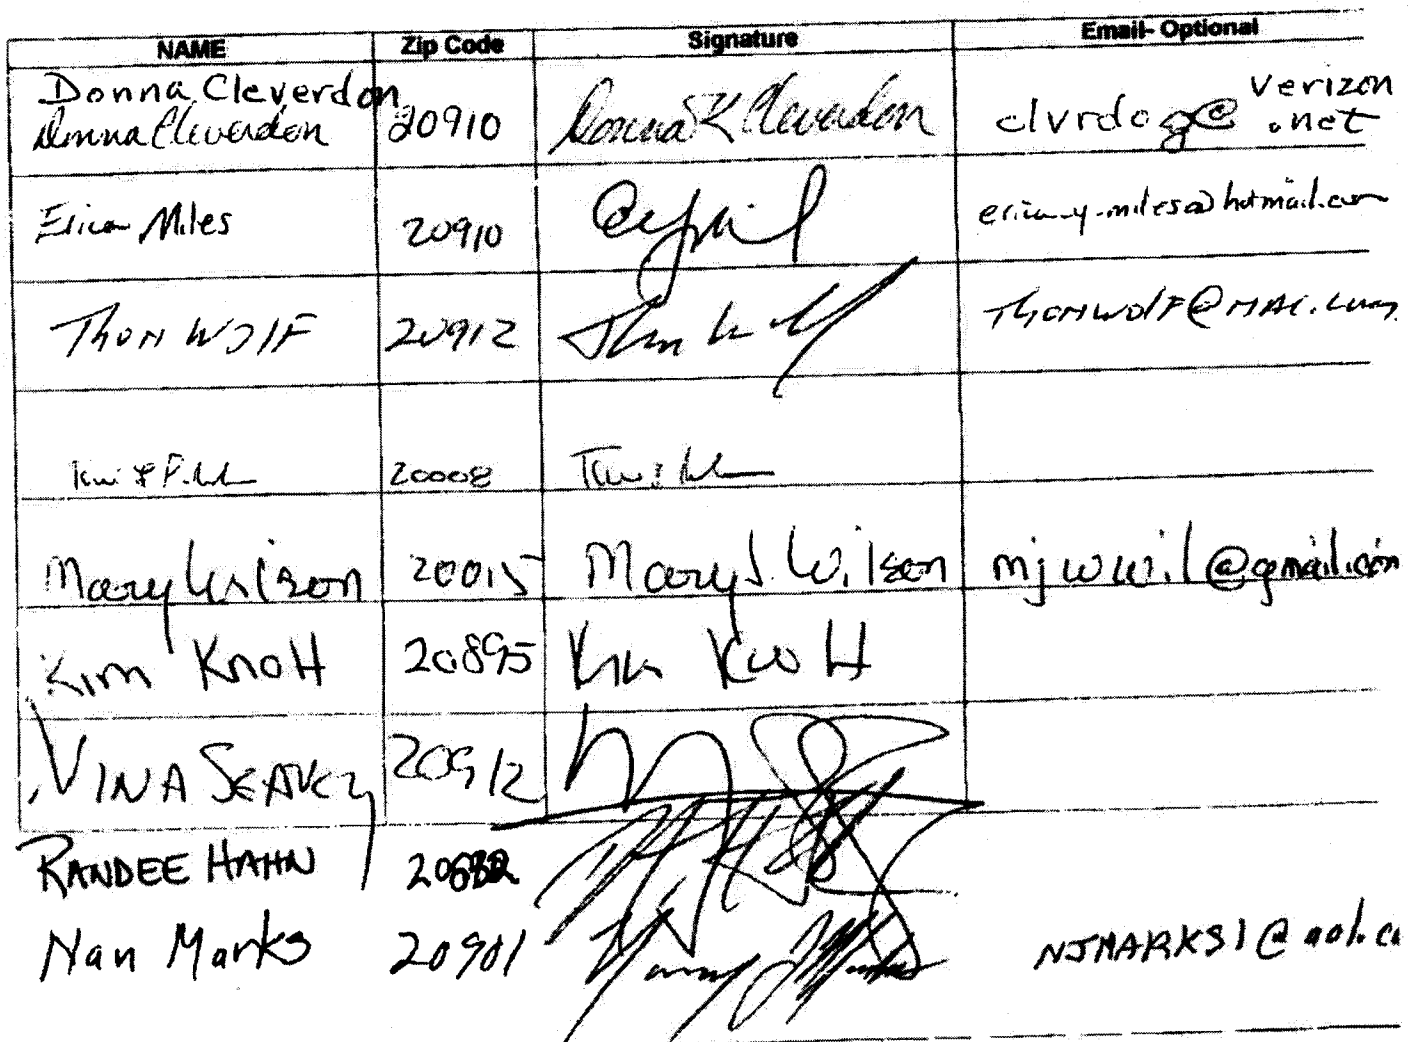 NAME Zip Code Signature Email- Optional
Donna Cleverdon verizon
Donna Cleverdon 20910 Donna K Cleverdon clvrdog@ .net
Erica Miles 20910 erica.y.miles@hotmail.com
Thon Wolf 20912 Thon Wolf ThonWolf@MAC.com
20008
Mary Wilson 20015 Mary J. Wilson mjwwil@gmail.com
Kim Knott 20895 Kim Knott
VINA SEAVEY 20912
RANDEE HAHN
Nan Marks 20901 Nancy J Marks NJMARKS1@aol.co